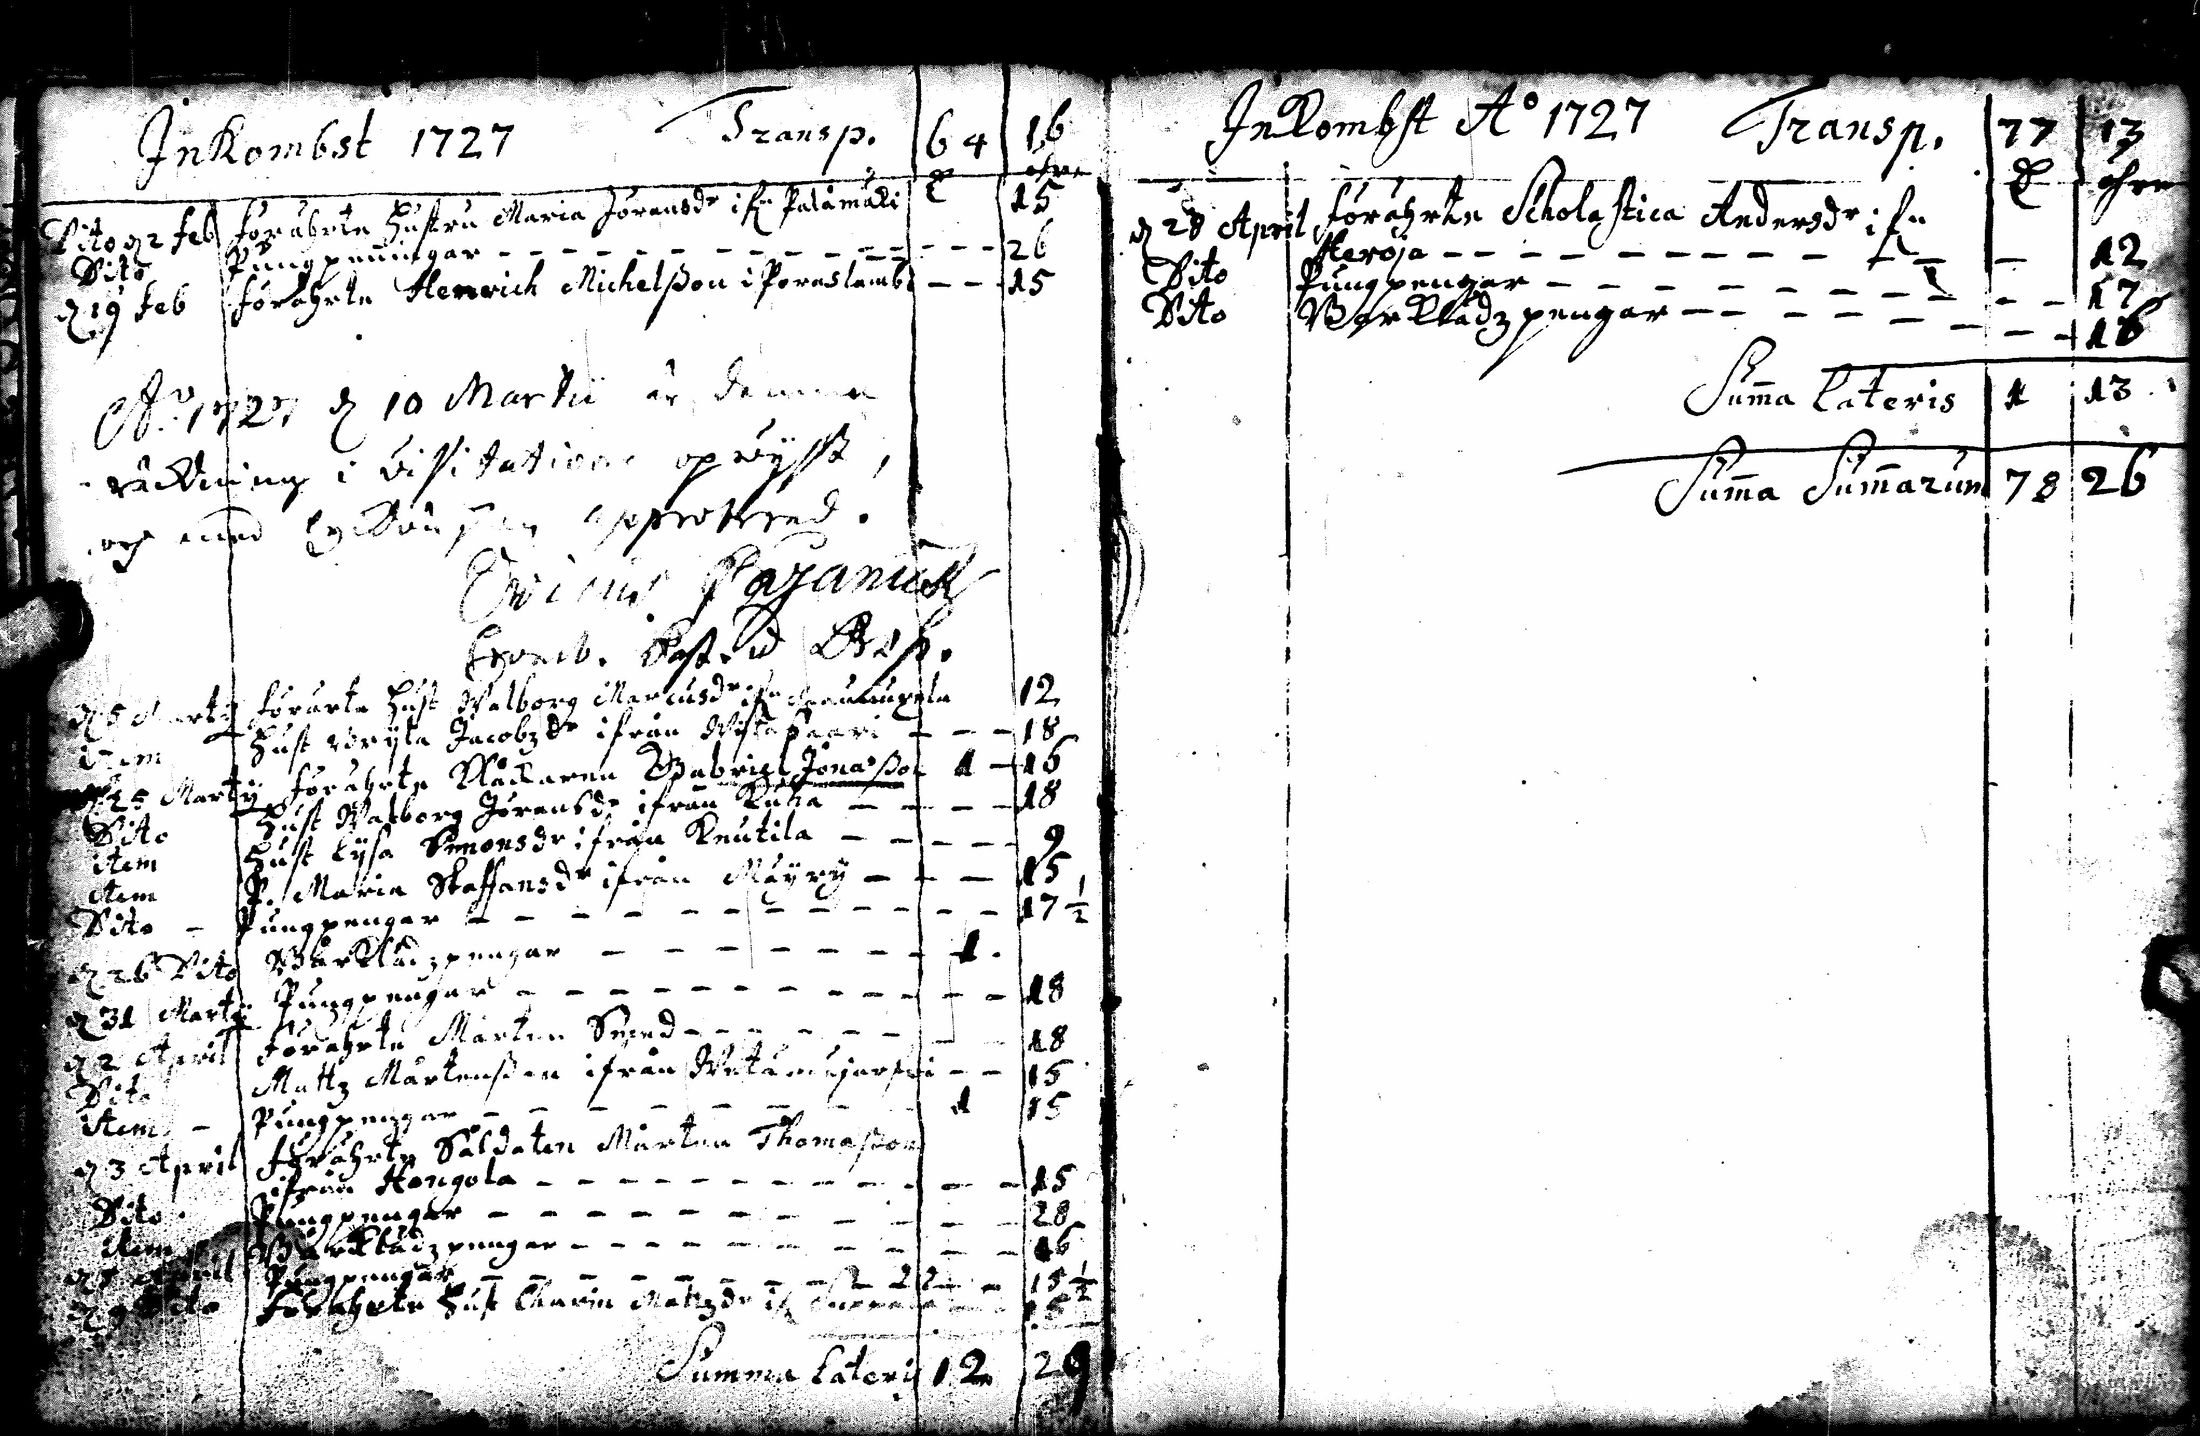 Inkombst 1727 Transp. 64 16
Dito d 2 Feb Förährte Hustru Maria Jöransdr ifr Palamäki 15
Dito Pungpenningar 26
d 19 Feb Förährte Henrich Michelßon i Poraslambi 15
Ao 1727 d 10 Martii är denna
räkning i Visitationen opwijst,
och med lyckönskan approberad.
d 5 Martij förärte Hust Walborg Marcusdr ifr 12
Item Hust Jacobzdr ifrån 18
d 25 Martij förährte Klåckaren Gabriel Jonaßon 1 16
Dito Hust Walborg Jöransdr ifrån 18
Item Hust Lysa Simonsdr ifrån Knutila 9
Item P. Maria Staffansdr ifrån Mäyry 15
Dito Pungpengar 17 1/2
d 26 Dito Bårklädzpengar 1
d 31 Martij Pungpengar 18
d 2 April Förährte Mårten 18
Dito Mattz Mårtenßon ifrån 15
Item Pungpengar 1 15
d 3 April förährte Saldaten Mårten Thomaßon
ifrån Hongola 15
Dito Pungpengar 28
Item Bårklädzpengar 16
April Pungpengar 15 1/2
d 9 Dito Förährte Hust Carin Mattzdr if 15
Summa Lateris 12 29
Inkombst Ao 1727 Transp. 77 13
öhre
d 28 April Förährte Scholastica Andersdr ifn
Heroja 12
Dito Pungpengar 17
Dito Bårklädzpengar 16
Suma Lateris 1 13
Suma Sumarum 78 26